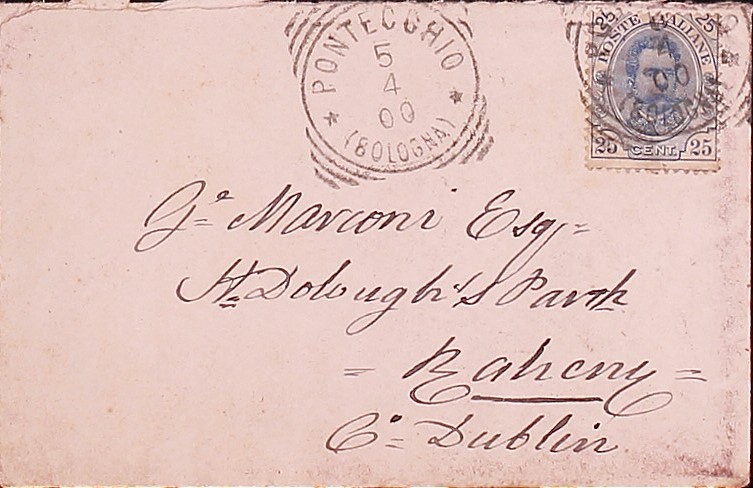 PONTECCHIO
5
4
00
(BOLOGNA)
25 POSTE ITALIANE 25
00
(BOLOGNA)
25 CENT. 25
Ge = Marconi Esq =
St. Doloughs Park
= Raheny =
Co = Dublin